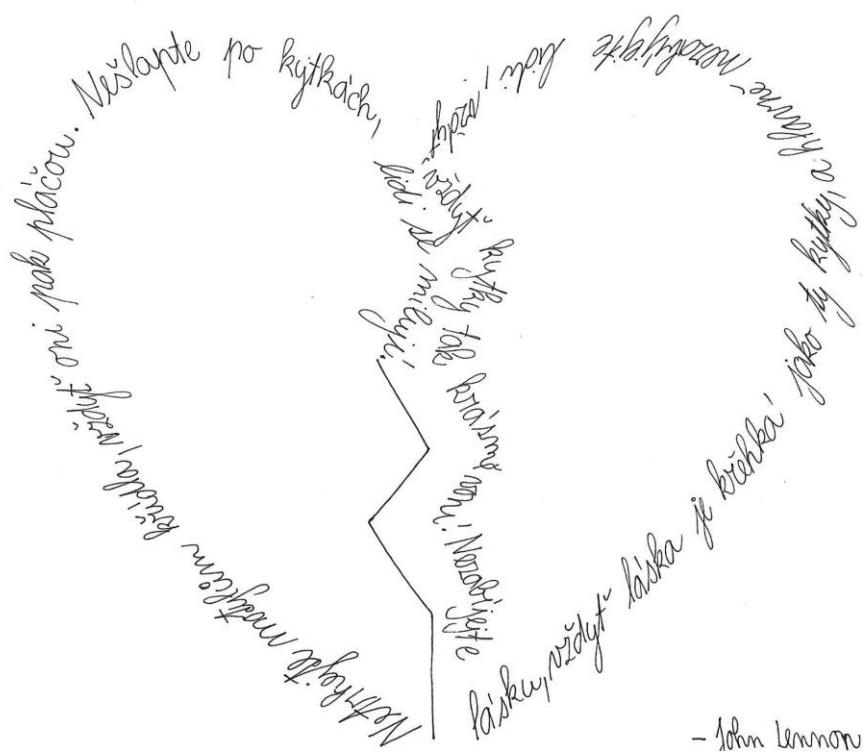 Netrhejte motýlům křídla, vždyť oni pak pláčou. Nešlapte po kytkách,
vždyť kytky tak krásně voní! Nezabíjejte
lásku, vždyť láska je křehká jako ty kytky, a hlavně nezabíjejte lidi, vždyť
lidi se milují.
- John Lennon